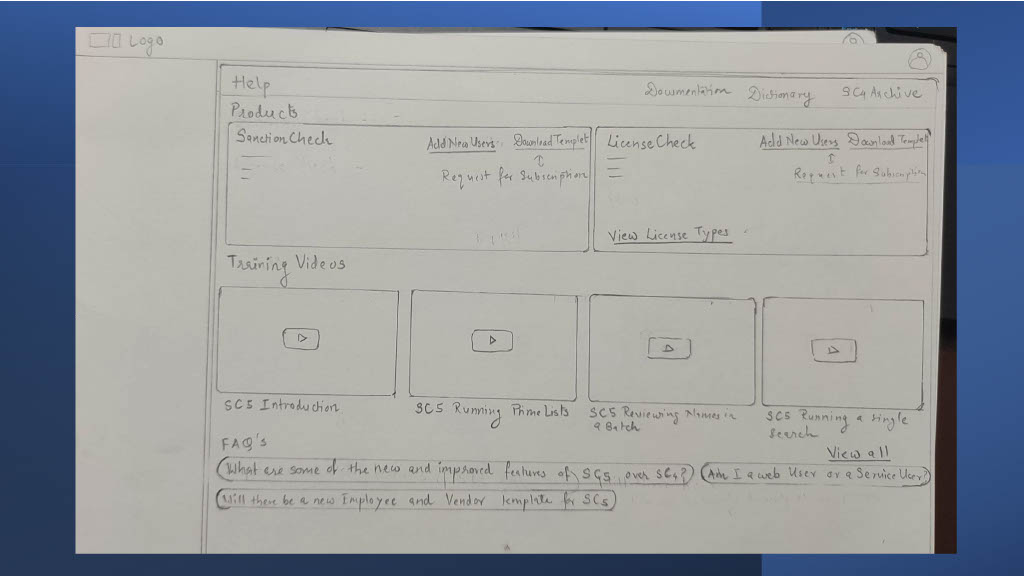 Logo
Help
Documentation Dictionary SC4 Archive
Products
SanctionCheck Add New Users Download Templet
Request for Subscription
LicenseCheck Add New Users Download Templet
Request for Subscription
View License Types
Training Videos
SC5 Introduction
SC5 Running Prime Lists
SC5 Reviewing Names in
a Batch
SC5 Running a single
Search
FAQ's
View all
What are some of the new and improved features of SC5, over SC4?
Am I a web User or a Service User?
Will there be a new Employee and Vendor template for SC5